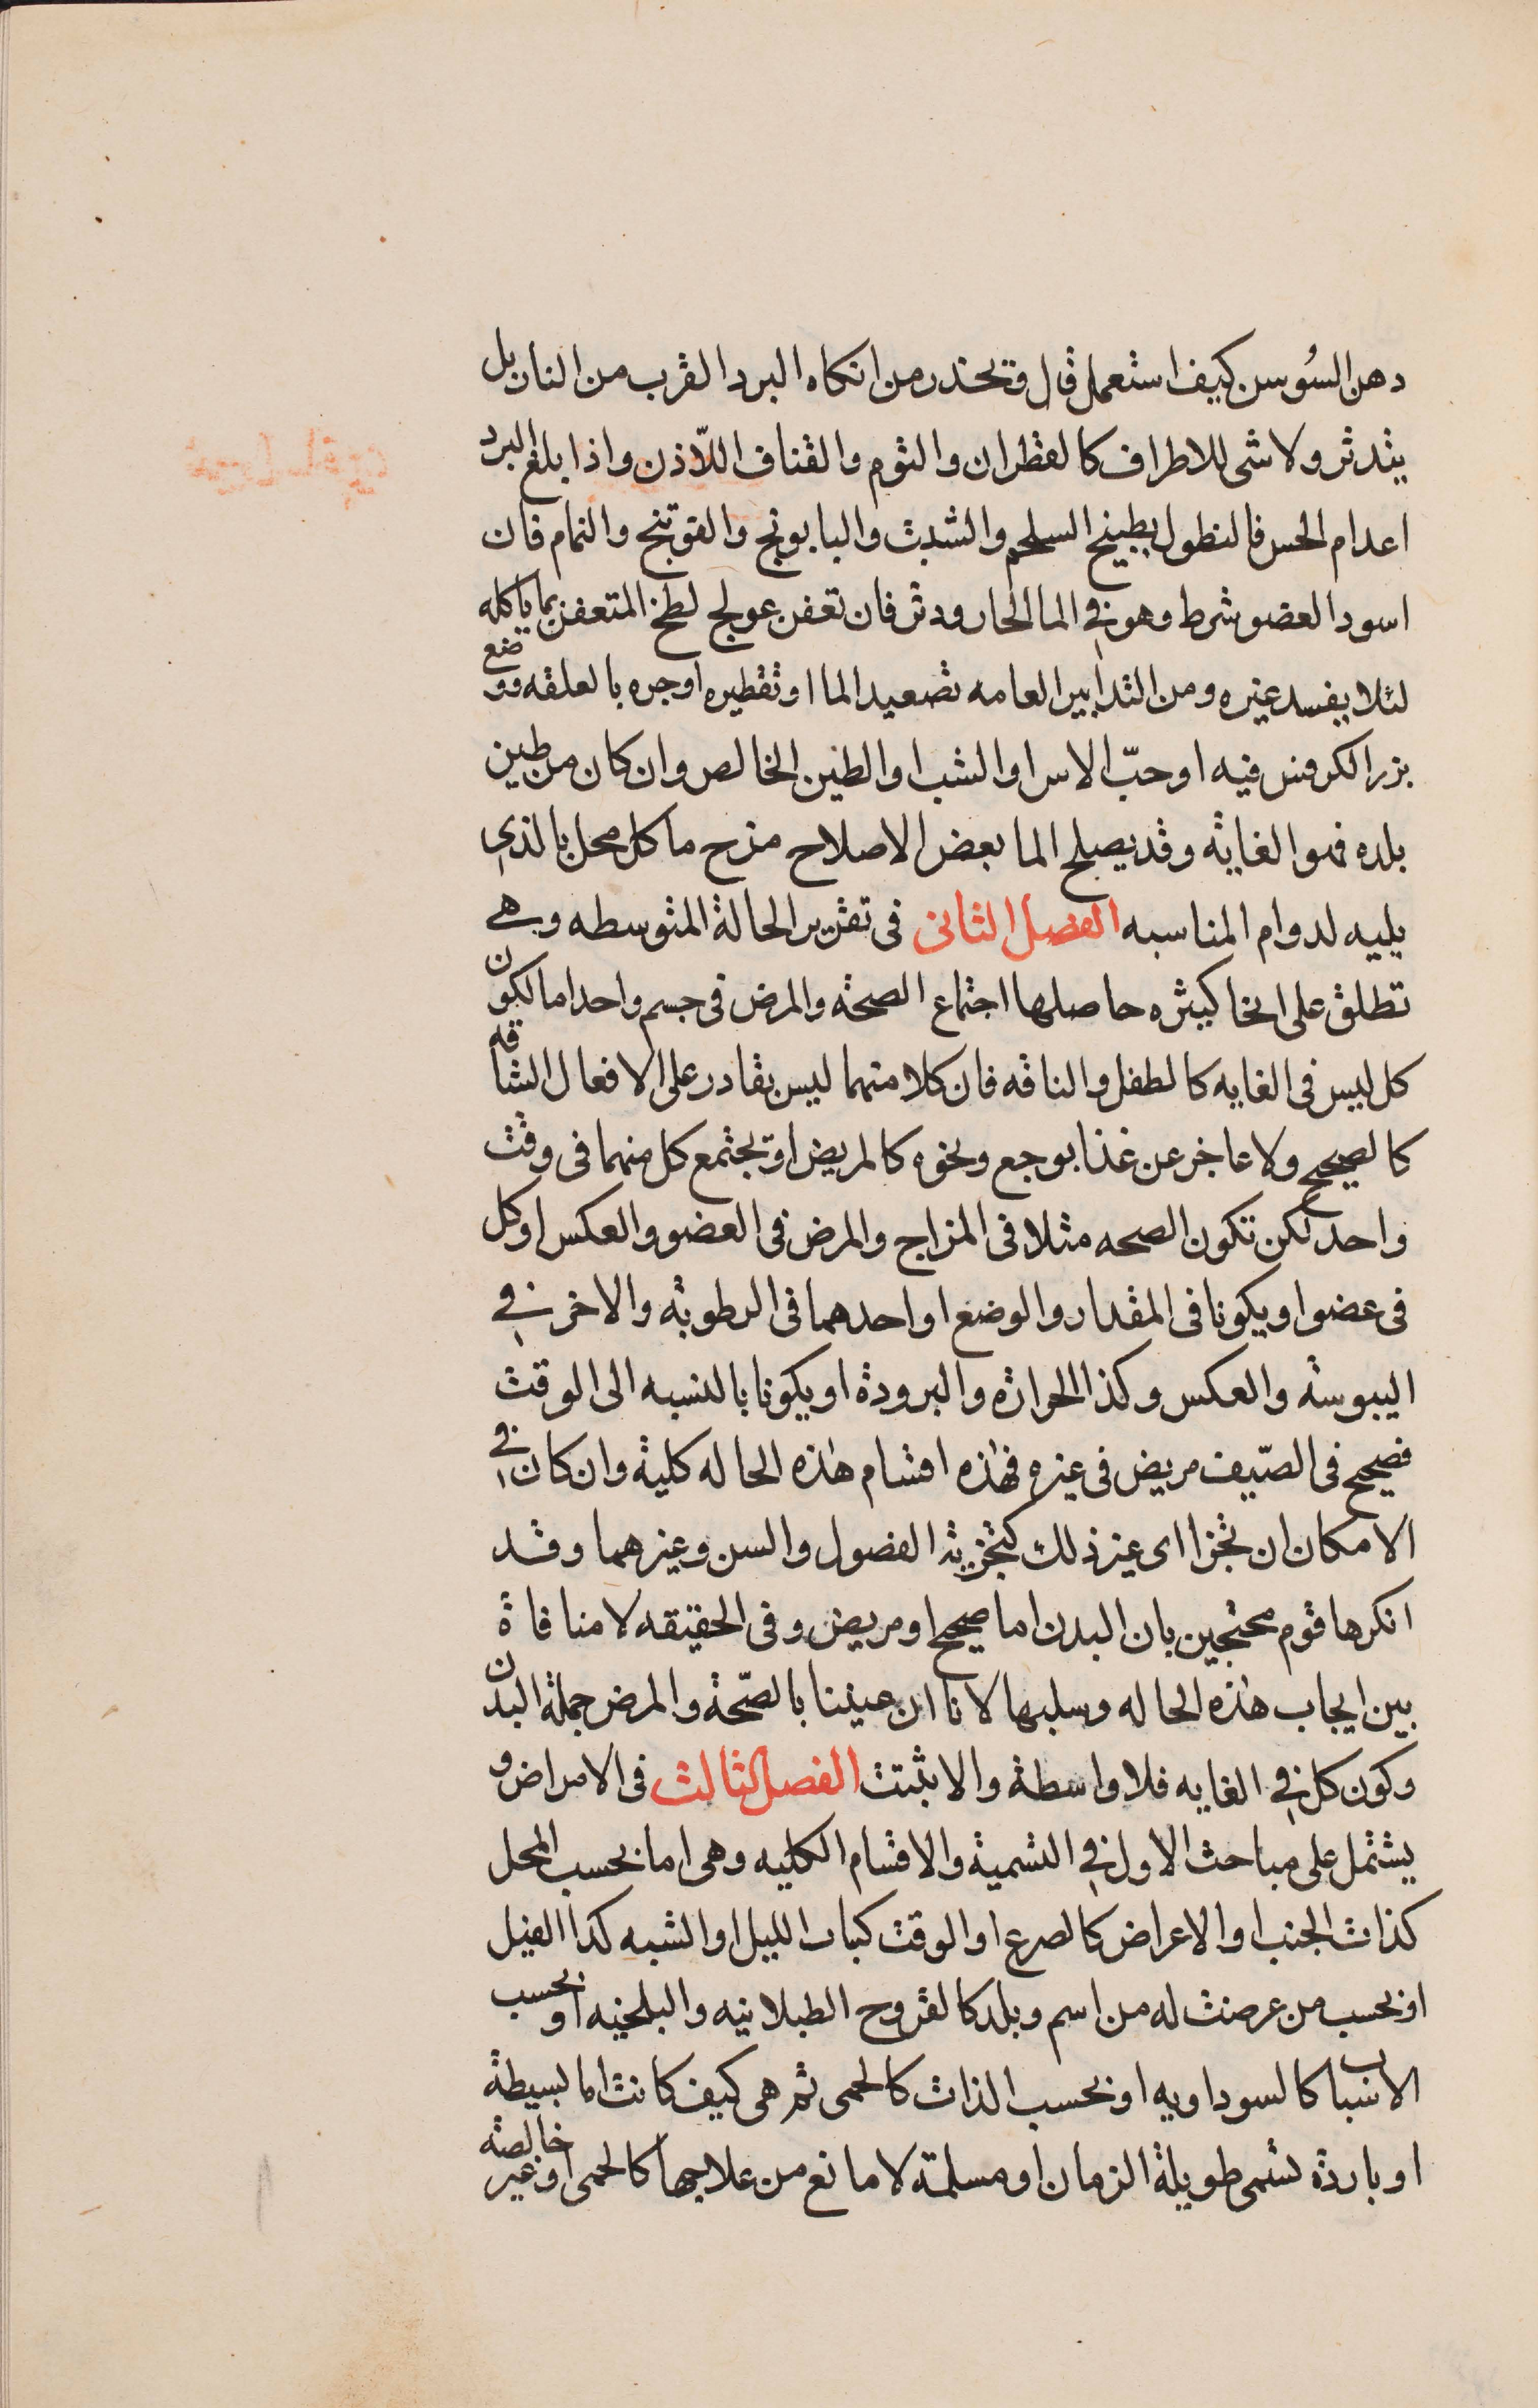 دهن السُوسن كيف استعمل قال ويحذر من انكاه البرد القرب من النار بل
يتدثر ولا شى للاطراف كالقطران والثوم والقناف اللّاذن واذا بلغ البرد
اعدام الحس فالنطول بطبيخ السلجم والشبث والبابونج والفوتنج والنمام فان
اسود العضو شرط وهو في الما الحار ودثر فان تعفن عولج لطخ المتعفن بما ياكله
لئلا يفسد غيره ومن التدابير العامه تصعيد الما او تقطيره او جره بالعلقه ووضع
بزر الكرفس فيه او حبّ الاس او الشب او الطين الخالص وان كان من طين
بلده فهو الغاية وقد يصلح الما بعض الاصلاح مزج ما كل محل بالذي
يليه لدوام المناسبه الفصل الثانى فى تقرير الحالة المتوسطه وهي
تطلق على انحا كثيره حاصلها اجتماع الصحة والمرض فى جسم واحد اما لكون
كل ليس فى الغايه كالطفل والناقه فان كلا منهما ليس بقادر على الافعال الشاقه
كالصحيح ولا عاجز عن غذا بوجع ونحوه كالمريض او يجتمع كل منهما فى وقت
واحد لكن تكون الصحه مثلا فى المزاج والمرض فى العضو والعكس او كل
فى عضو او يكونا فى المقدار والوضع او احدهما فى الرطوبة والاخر في
اليبوسة والعكس وكذا الحرارة والبرودة او يكونا بالنسبه الى الوقت
فصحيح فى الصّيف مريض فى غيره فهذه اقسام هذه الحاله كلية وان كان في
الامكان ان تجزا اى غير ذلك كتجزية الفصول والسن وغيرهما وقد
انكرها قوم محتجين بان البدن اما صحيح او مريض وفى الحقيقه لا منافاة
بين ايجاب هذه الحاله وسلبها لانا ان عنينا بالصّحة والمرض جملة البدن
وكون كل في الغايه فلا واسطة والا ثبتت الفصل الثالث فى الامراض و
يشتمل على مباحث الاول في التسمية والاقسام الكليه وهى اما بحسب المحل
كذات الجنب او الاعراض كالصرع او الوقت كبنات الليل او الشبه كدا الفيل
او بحسب من عرضت له من اسم وبلد كالقروح الطيلانيه والبلخيه او بحسب
الاسباب كالسوداويه او بحسب الذات كالحمى ثم هى كيف كانت اما بسيطة
او باردة تسمى طويلة الزمان او مسلمة لا مانع من علاجها كالحمى او غير خالصة